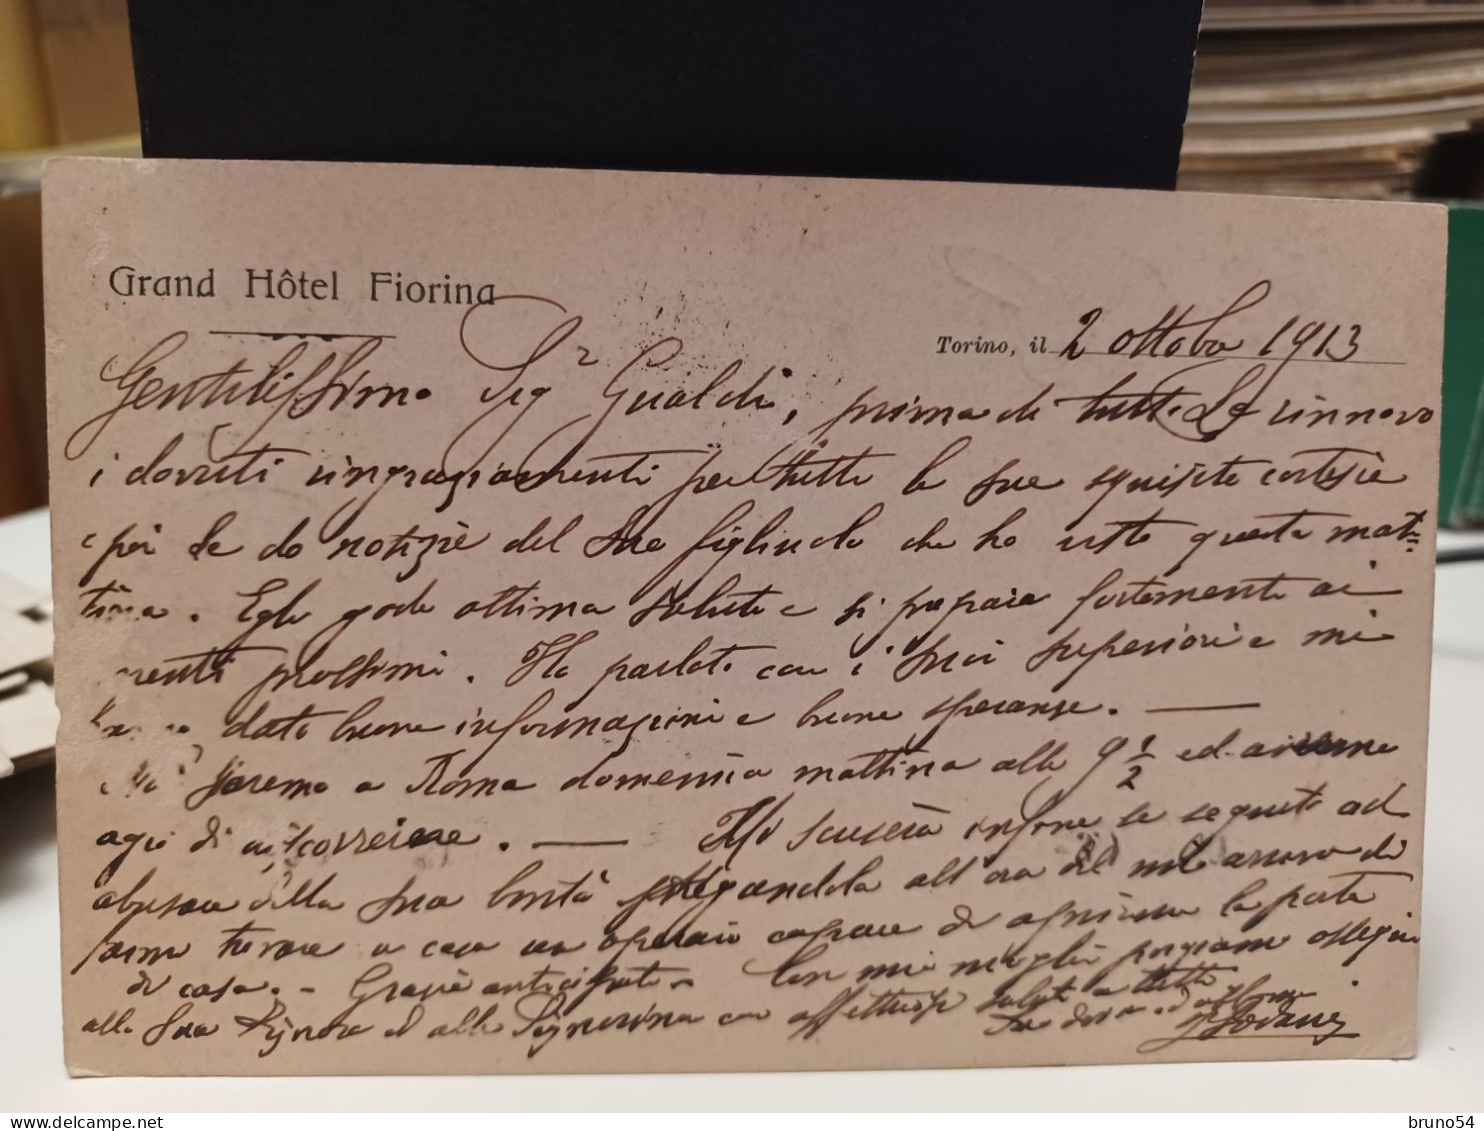 Grand Hôtel Fiorina
Torino, il 2 ottobre 1913
Gentilissimo Sigr Gualdi, prima di tutto Le rinnovo
i dovuti ringraziamenti per tutte le sue squisite cortesie
e poi Le do notizie del suo figliuolo che ho visto questa mat=
tina. Egli gode ottima salute e si prepara fortemente ai
prossimi. Ho parlato con i suoi superiori e mi
dato buone informazioni e buone speranze. —
saremo a Roma domenica mattina alle 9 1/2 ed avremo
agio di discorrere. — Mi scuserà infine se seguito ad
abusare della sua bontà pregandola all'ora del mio arrivo di
farmi trovare a casa un operaio capace di aprirmi la porta
di casa. - Grazie anticipate - Con mia moglie porgiamo ossequi
alla Sua Signora ed alla Signorina con affettuosi saluti a tutti
Suo
bruno54